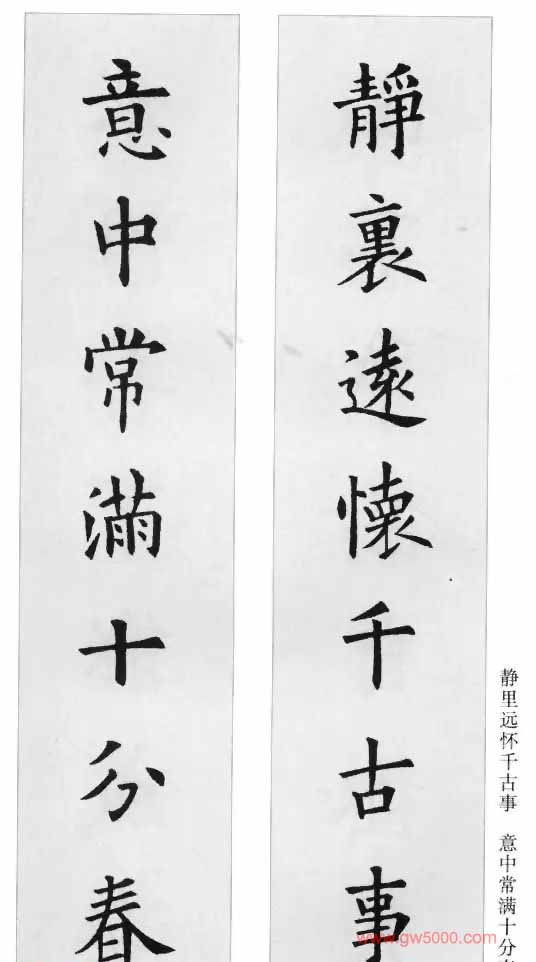 靜裏遠懷千古事
意中常滿十分春
静里远怀千古事 意中常满十分
www.gw5000.com